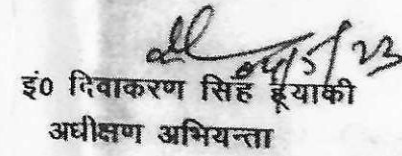 04/5/23
इं० दिवाकरण सिंह ह्याकी
अधीक्षण अभियन्ता